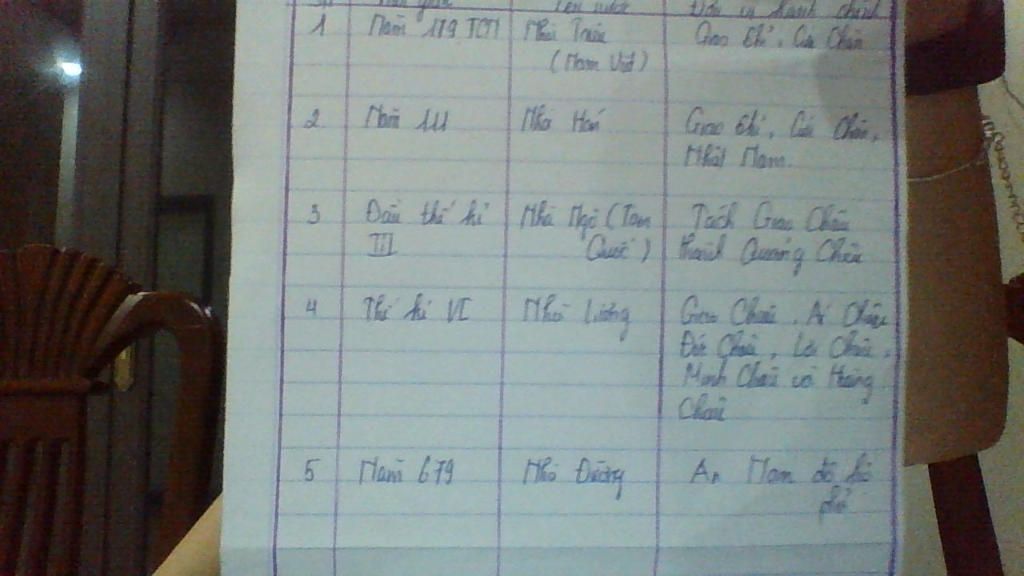 TT Thời gian Tên nước Đơn vị hành chính
1 Năm 179 TCN Nhà Triệu Giao Chỉ, Cửu Chân
(Nam Việt)
2 Năm 111 Nhà Hán Giao Chỉ, Cửu Chân,
Nhật Nam.
3 Đầu thế kỉ Nhà Ngô (Tam Tách Giao Châu
III Quốc) thành Quảng Châu
4 Thế kỉ VI Nhà Lương Giao Châu, Ái Châu,
Đức Châu, Lợi Châu,
Minh Châu và Hoàng
Châu
5 Năm 679 Nhà Đường An Nam đô hộ
phủ